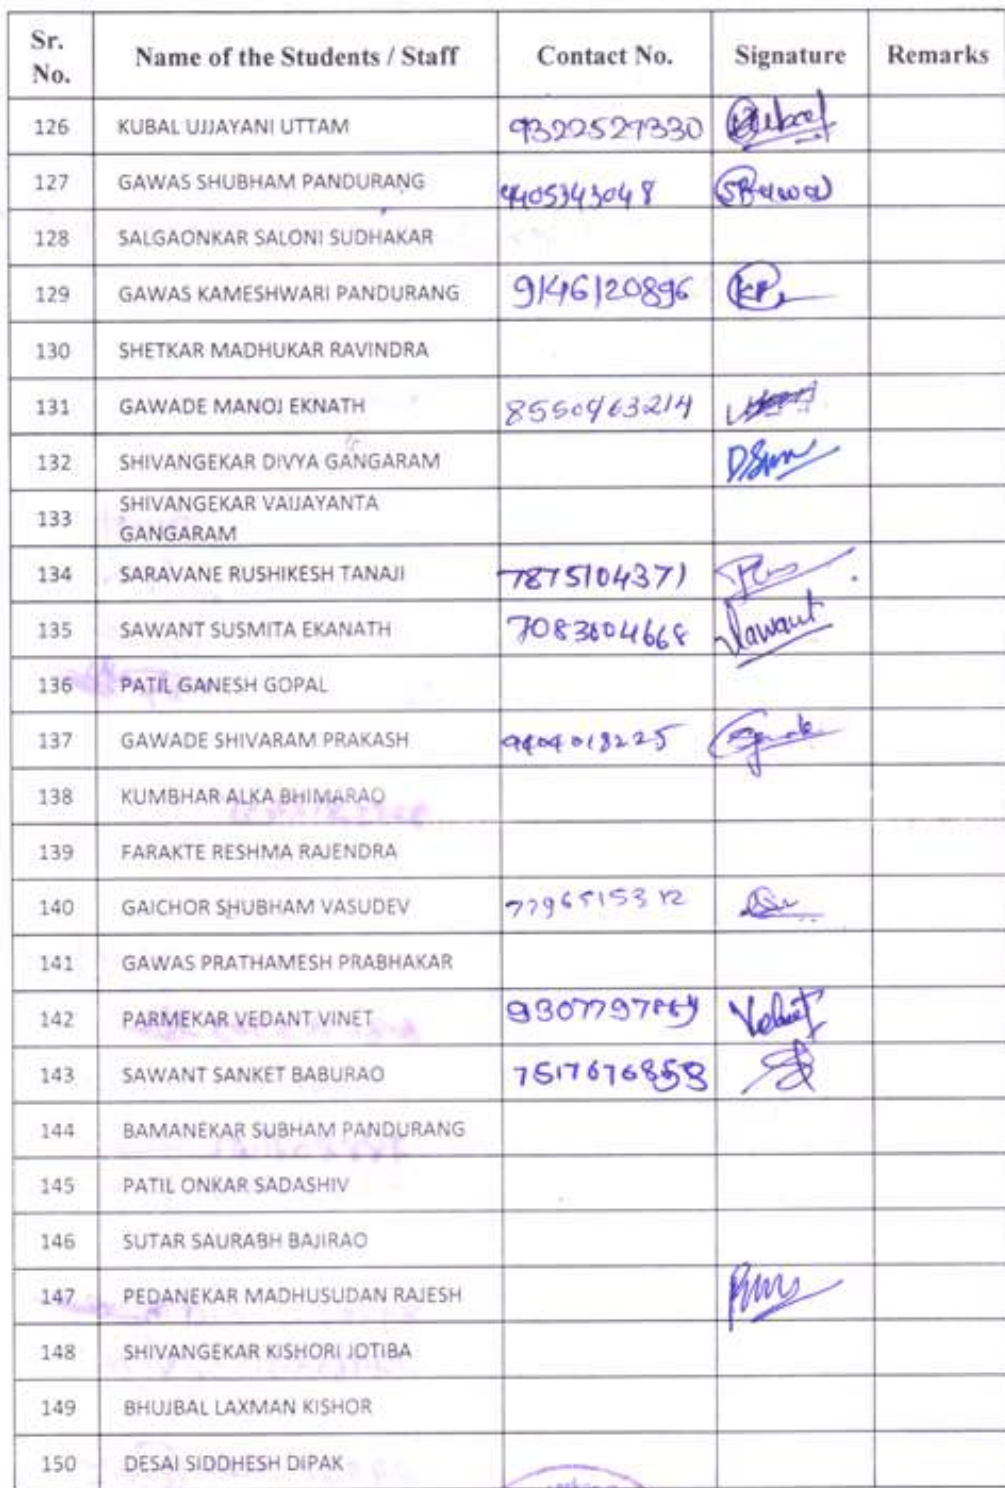 Sr. No. Name of the Students / Staff Contact No. Signature Remarks
126 KUBAL UJJAYANI UTTAM 9322527330
127 GAWAS SHUBHAM PANDURANG 9405343048
128 SALGAONKAR SALONI SUDHAKAR
129 GAWAS KAMESHWARI PANDURANG 9146120896 KP
130 SHETKAR MADHUKAR RAVINDRA
131 GAWADE MANOJ EKNATH 8550963214
132 SHIVANGEKAR DIVYA GANGARAM
133 SHIVANGEKAR VAIJAYANTA
GANGARAM
134 SARAVANE RUSHIKESH TANAJI 7875104371
135 SAWANT SUSMITA EKANATH Sawant
136 PATIL GANESH GOPAL
137 GAWADE SHIVARAM PRAKASH 9404018225
138 KUMBHAR ALKA BHIMARAO
139 FARAKTE RESHMA RAJENDRA
140 GAICHOR SHUBHAM VASUDEV
141 GAWAS PRATHAMESH PRABHAKAR
142 PARMEKAR VEDANT VINET
143 SAWANT SANKET BABURAO
144 BAMANEKAR SUBHAM PANDURANG
145 PATIL ONKAR SADASHIV
146 SUTAR SAURABH BAJIRAO
147 PEDANEKAR MADHUSUDAN RAJESH
148 SHIVANGEKAR KISHORI JOTIBA
149 BHUJBAL LAXMAN KISHOR
150 DESAI SIDDHESH DIPAK